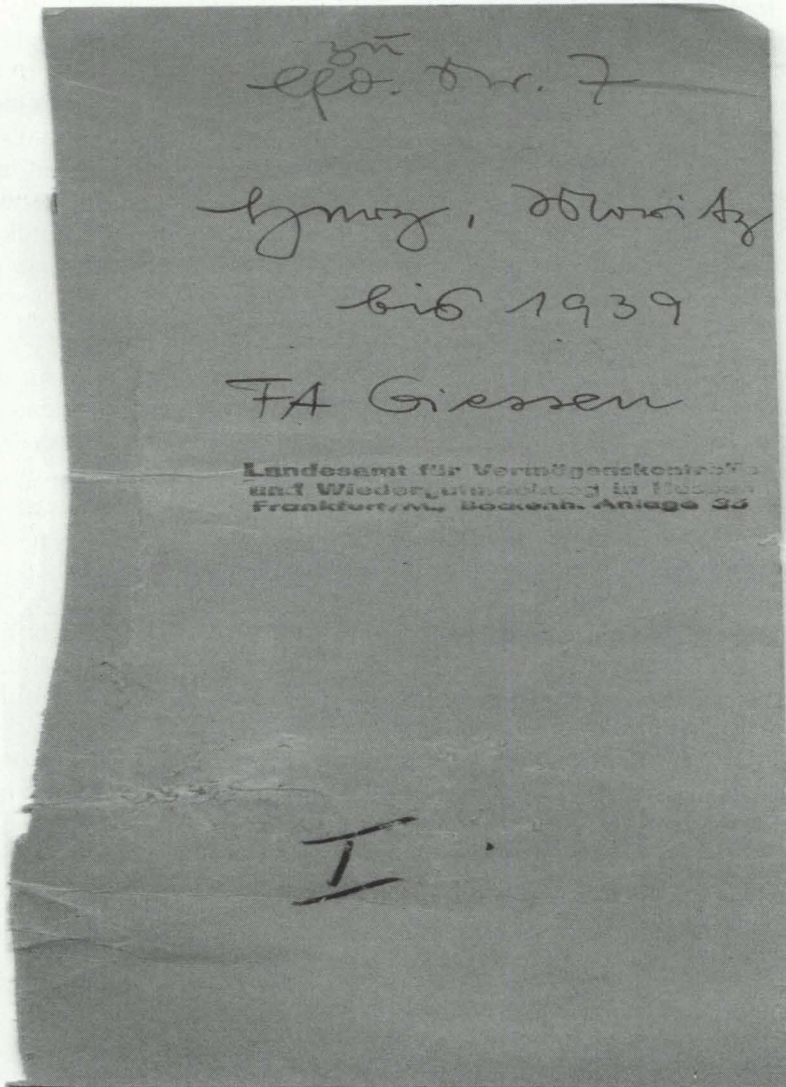 zu
lfd. Nr. 7
Moritz
bis 1939
FA Giessen
Landesamt für Vermögenskontrolle
und Wiedergutmachung in Hessen
Frankfurt/M., Bockenh. Anlage
I.